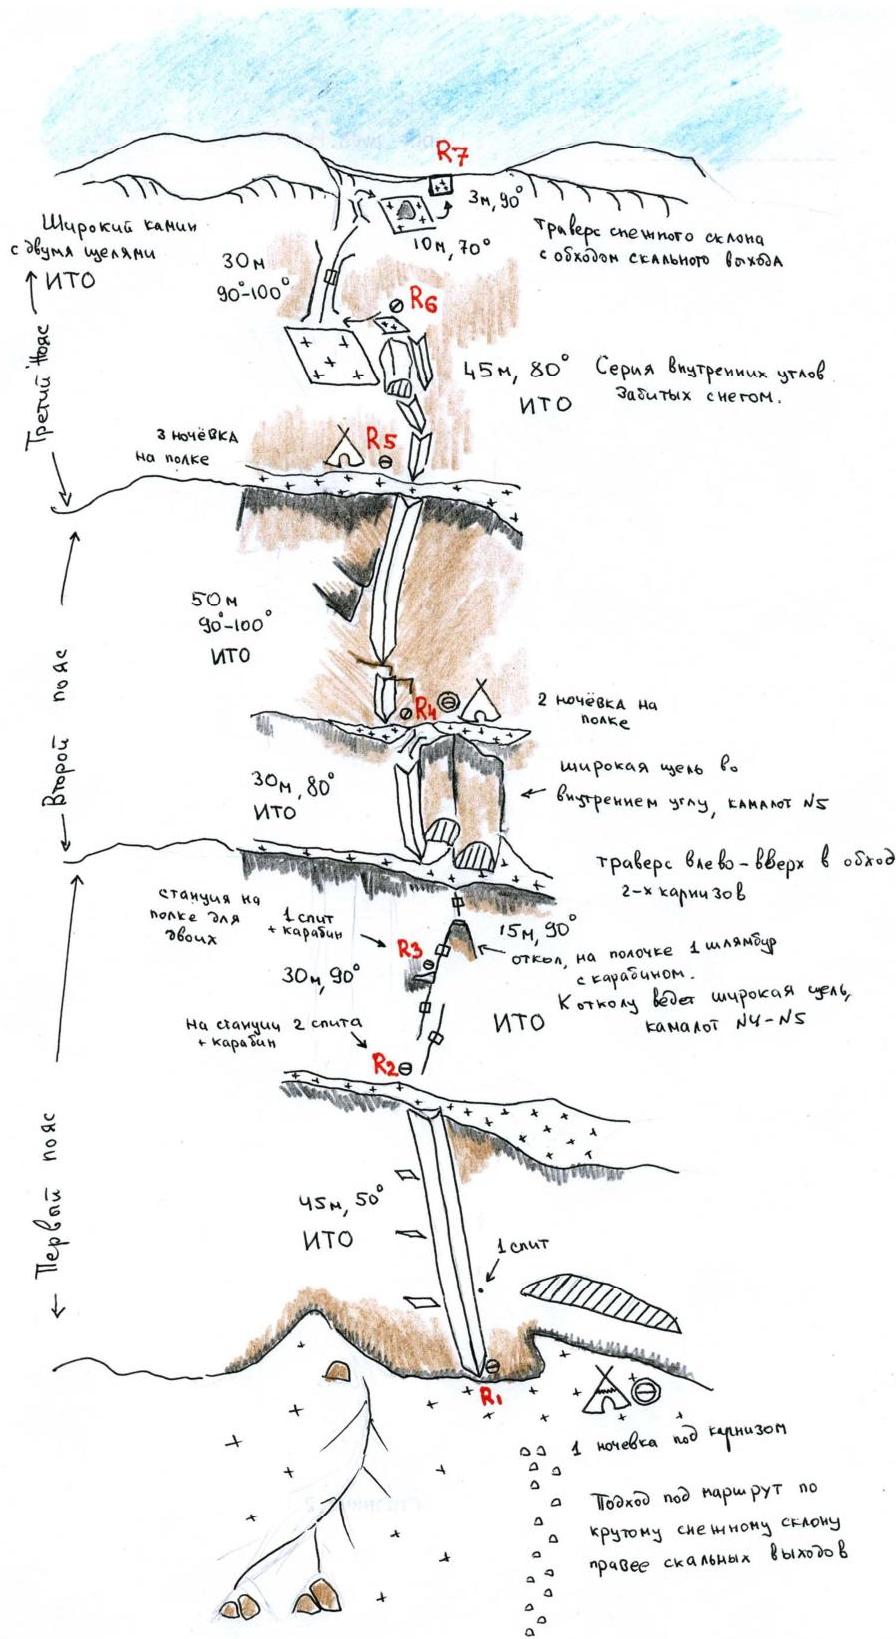 R7
3м, 90°
Широкий камин
с двумя щелями
ИТО
30м
90°-100°
10м, 70°
траверс снежного склона
с обходом скального выхода
R6
Третий пояс
45м, 80°
ИТО
Серия внутренних углов
Забитых снегом.
3 ночёвка
на полке
R5
50м
90°-100°
ИТО
Второй пояс
R4
2 ночёвка на
полке
30м, 80°
ИТО
широкая щель во
внутреннем углу, камалот N5
траверс влево-вверх в обход
2-х карнизов
станция на
полке для
двоих
1 спит
+ карабин
R3
15м, 90°
откол, на полочке 1 шлямбур
с карабином.
К отколу ведет широкая щель,
камалот N4-N5
30м, 90°
ИТО
На станции 2 спита
+ карабин
R2
Первый пояс
45м, 50°
ИТО
1 спит
R1
1 ночевка под карнизом
Подход под маршрут по
крутому снежному склону
правее скальных выходов